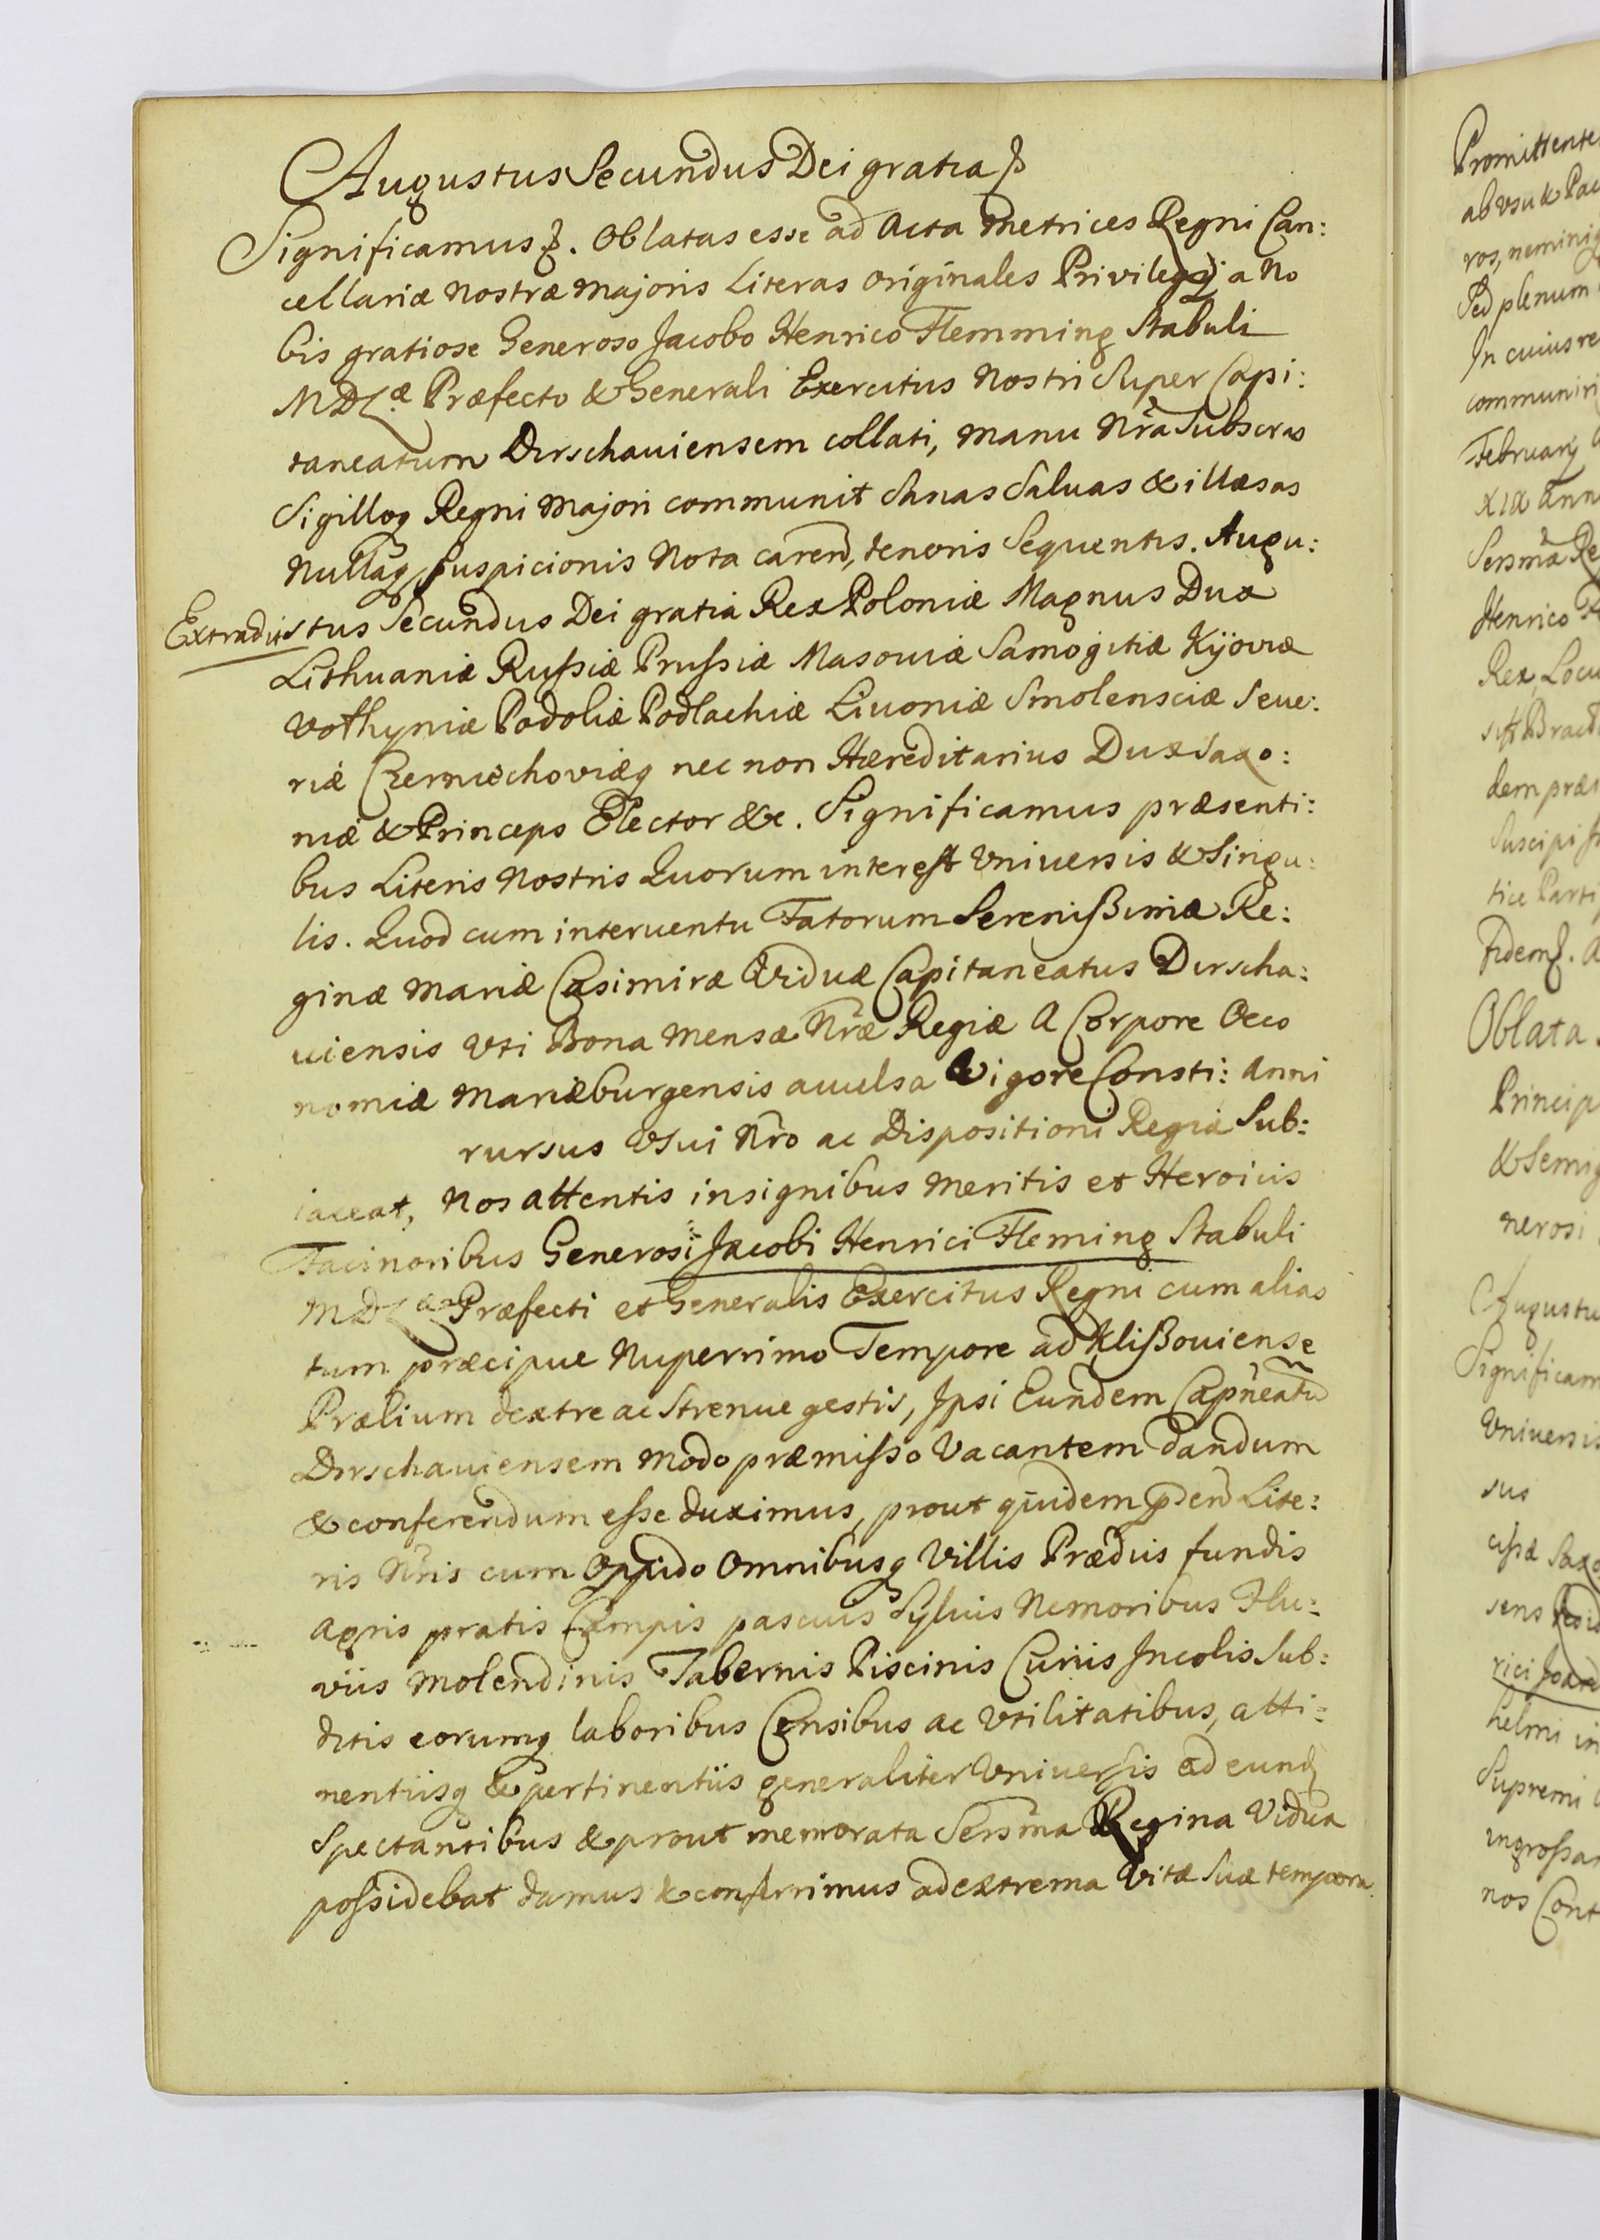 Augustus Secundus Dei gratia
Significamus. Oblatas esse ad Acta Metrices Regni Can:
cellariæ Nostræ Majoris Literas Originales Privilegij a No
bis gratiose Generoso Jacobo Henrico Flemming Stabuli
MDLæ Præfecto & Generali Exercitus Nostri Super Capi:
taneatum Dirschauiensem collati, manu Nra Subscras
Sigilloq Regni Majori communit Sanas Saluas & illæsas
Nullaq suspicionis Nota caren, tenoris Sequentis. Augu:
Extradit
stus Secundus Dei gratia Rex Poloniæ Magnus Dux
Lithuaniæ Russiæ Prussiæ Masouiæ Samogitiæ Kijoviæ
Volhyniæ Podoliæ Podlachiæ Liuoniæ Smolensciæ Seue:
riæ Czerniechoviæq nec non Hæreditarius Dux Saxo:
niæ & Princeps Elector &c. Significamus præsenti:
bus Literis Nostris Quorum interest Vniuersis & Singu:
lis. Quod cum interuentu Fatorum Serenissimæ Re:
ginæ Mariæ Casimiræ Viduæ Capitaneatus Dirscha:
uiensis Vti Bona Mensæ Nræ Regiæ A Corpore Oeco
nomiæ Mariæburgensis auulsa Vigore Consti: Anni
rursus Vsui Nro ac Dispositioni Regiæ Sub:
iaceat, Nos attentis insignibus Meritis et Heroicis
Facinoribus Generosi Jacobi Henrici Fleming Stabuli
MDL Præfecti et Generalis Exercitus Regni cum alias
tum præcipue Nuperrimo Tempore ad Klissouiense
Prælium dextre ac Strenue gestis, Ipsi Eundem Capneatu
Dirschauiensem Modo præmisso Vacantem dandum
& conferendum esse duximus, prout quidem Lite:
ris Nris cum Oppido Omnibusq Villis Prædiis fundis
Agris pratis Campis pascuis Syluis Nemoribus Flu:
viis Molendinis Tabernis Piscinis Curiis Incolis Sub:
ditis eorumq laboribus Censibus ac Vtilitatibus, atti:
nentiisq & pertinentiis generaliter Vniuersis ad eund
Spectantibus & prout memorata Sersma Regina Vidua
possidebat damus & conferrimus ad extrema Vitæ Suæ tempora
Promittente
ab vsu & Pac
ros, nemini
Sed plenum
In cuius re
communiri
February
XIX Ann
Sersma Re
Henrico F
Rex, Locu
dem præs
Suscipi
tice Parti
fidem. A
Oblata.
Princip
& Semig
nerosi
Augustu
Significam
Vniuersis
sus
cisæ Saxo
sens
rici Joan
helmi in
Supremi
ingrossar
nos Cont